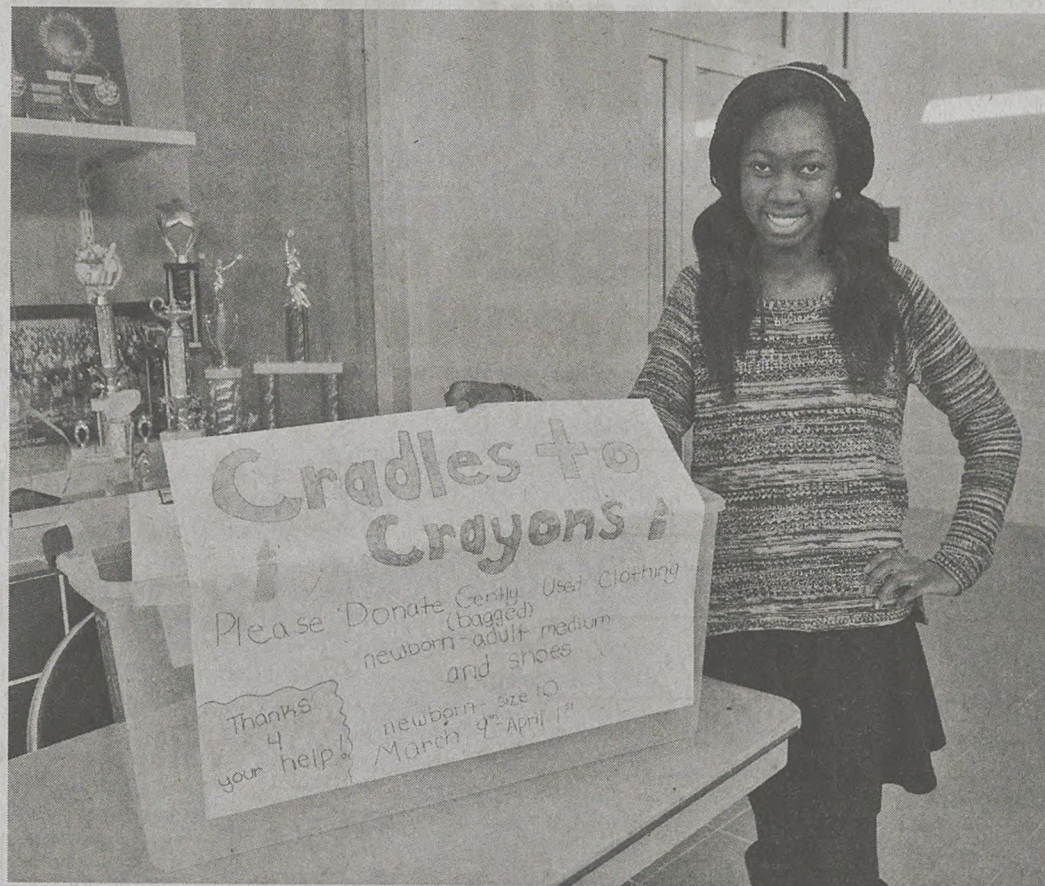 Cradles to
Crayons!
Please Donate Gently Used Clothing
(bagged)
newborn-adult medium
and shoes
newborn-size 10
March 9th-April 1st
Thanks
4
your help!